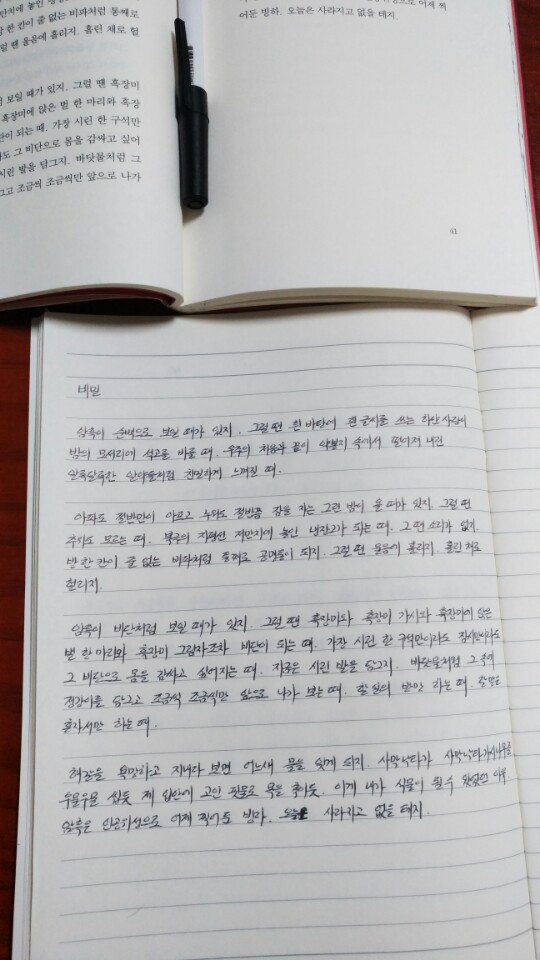 한 칸이 줄 없는 비파처럼 통째로
럴 땐 울음에 홀리지. 홀린 채로 헐
보일 때가 있지. 그럴 땐 흑장미
흑장미에 앉은 벌 한 마리와 흑장
단이 되는 때. 가장 시린 한 구석만
도 그 비단으로 몸을 감싸고 싶어
시린 발을 담그지. 바닷물처럼 그
그고 조금씩 조금씩만 앞으로 나가
어둔 빙하. 오늘은 사라지고 없을 테지.
41
비밀
암흑이 순백으로 보일 때가 있지. 그럴 땐 흰 바탕에 흰 글씨를 쓰는 하얀 사람이
밤의 모서리에 석고를 바를 때. 우주의 처음과 끝이 약봉지 속에서 쏟아져 내린
알록달록한 알약들처럼 찬란하게 느껴질 때.
아파도 절반만이 아프고 누워도 절반쯤 잠을 자는 그런 밤이 올 때가 있지. 그럴 땐
추위도 모르는 때. 북극의 지평선 저만치에 놓인 냉장고가 되는 때. 그 땐 소리가 없지.
방 한 칸이 줄 없는 비파처럼 통째로 공명통이 되지. 그럴 땐 울음에 홀리지. 홀린 채로
헐리지.
암흑이 비단처럼 보일 때가 있지. 그럴 땐 흑장미와 흑장미 가시와 흑장미에 앉은
벌 한 마리와 흑장미 그림자조차 비단이 되는 때. 가장 시린 한 구석만이라도 잠시만이라도
그 비단으로 몸을 감싸고 싶어지는 때. 지구는 시린 발을 담그지. 바닷물처럼 그 속에
정강이를 담그고 조금씩 조금씩만 앞으로 나가 보는 때. 할 일이 받았 하는 때. 할 말은
혼자서만 하는 때.
해갈을 욕망하고 지내다 보면 어느새 물을 잊게 되지. 사막낙타가 사막낙타가시나무를
우물우물 씹듯 제 입안에 고인 핏물로 목을 축이듯. 이게 내가 식물이 될 수 있었던 이유.
암흑은 인공위성으로 어제 찍어둔 빙하. 오늘은 사라지고 없을 테지.